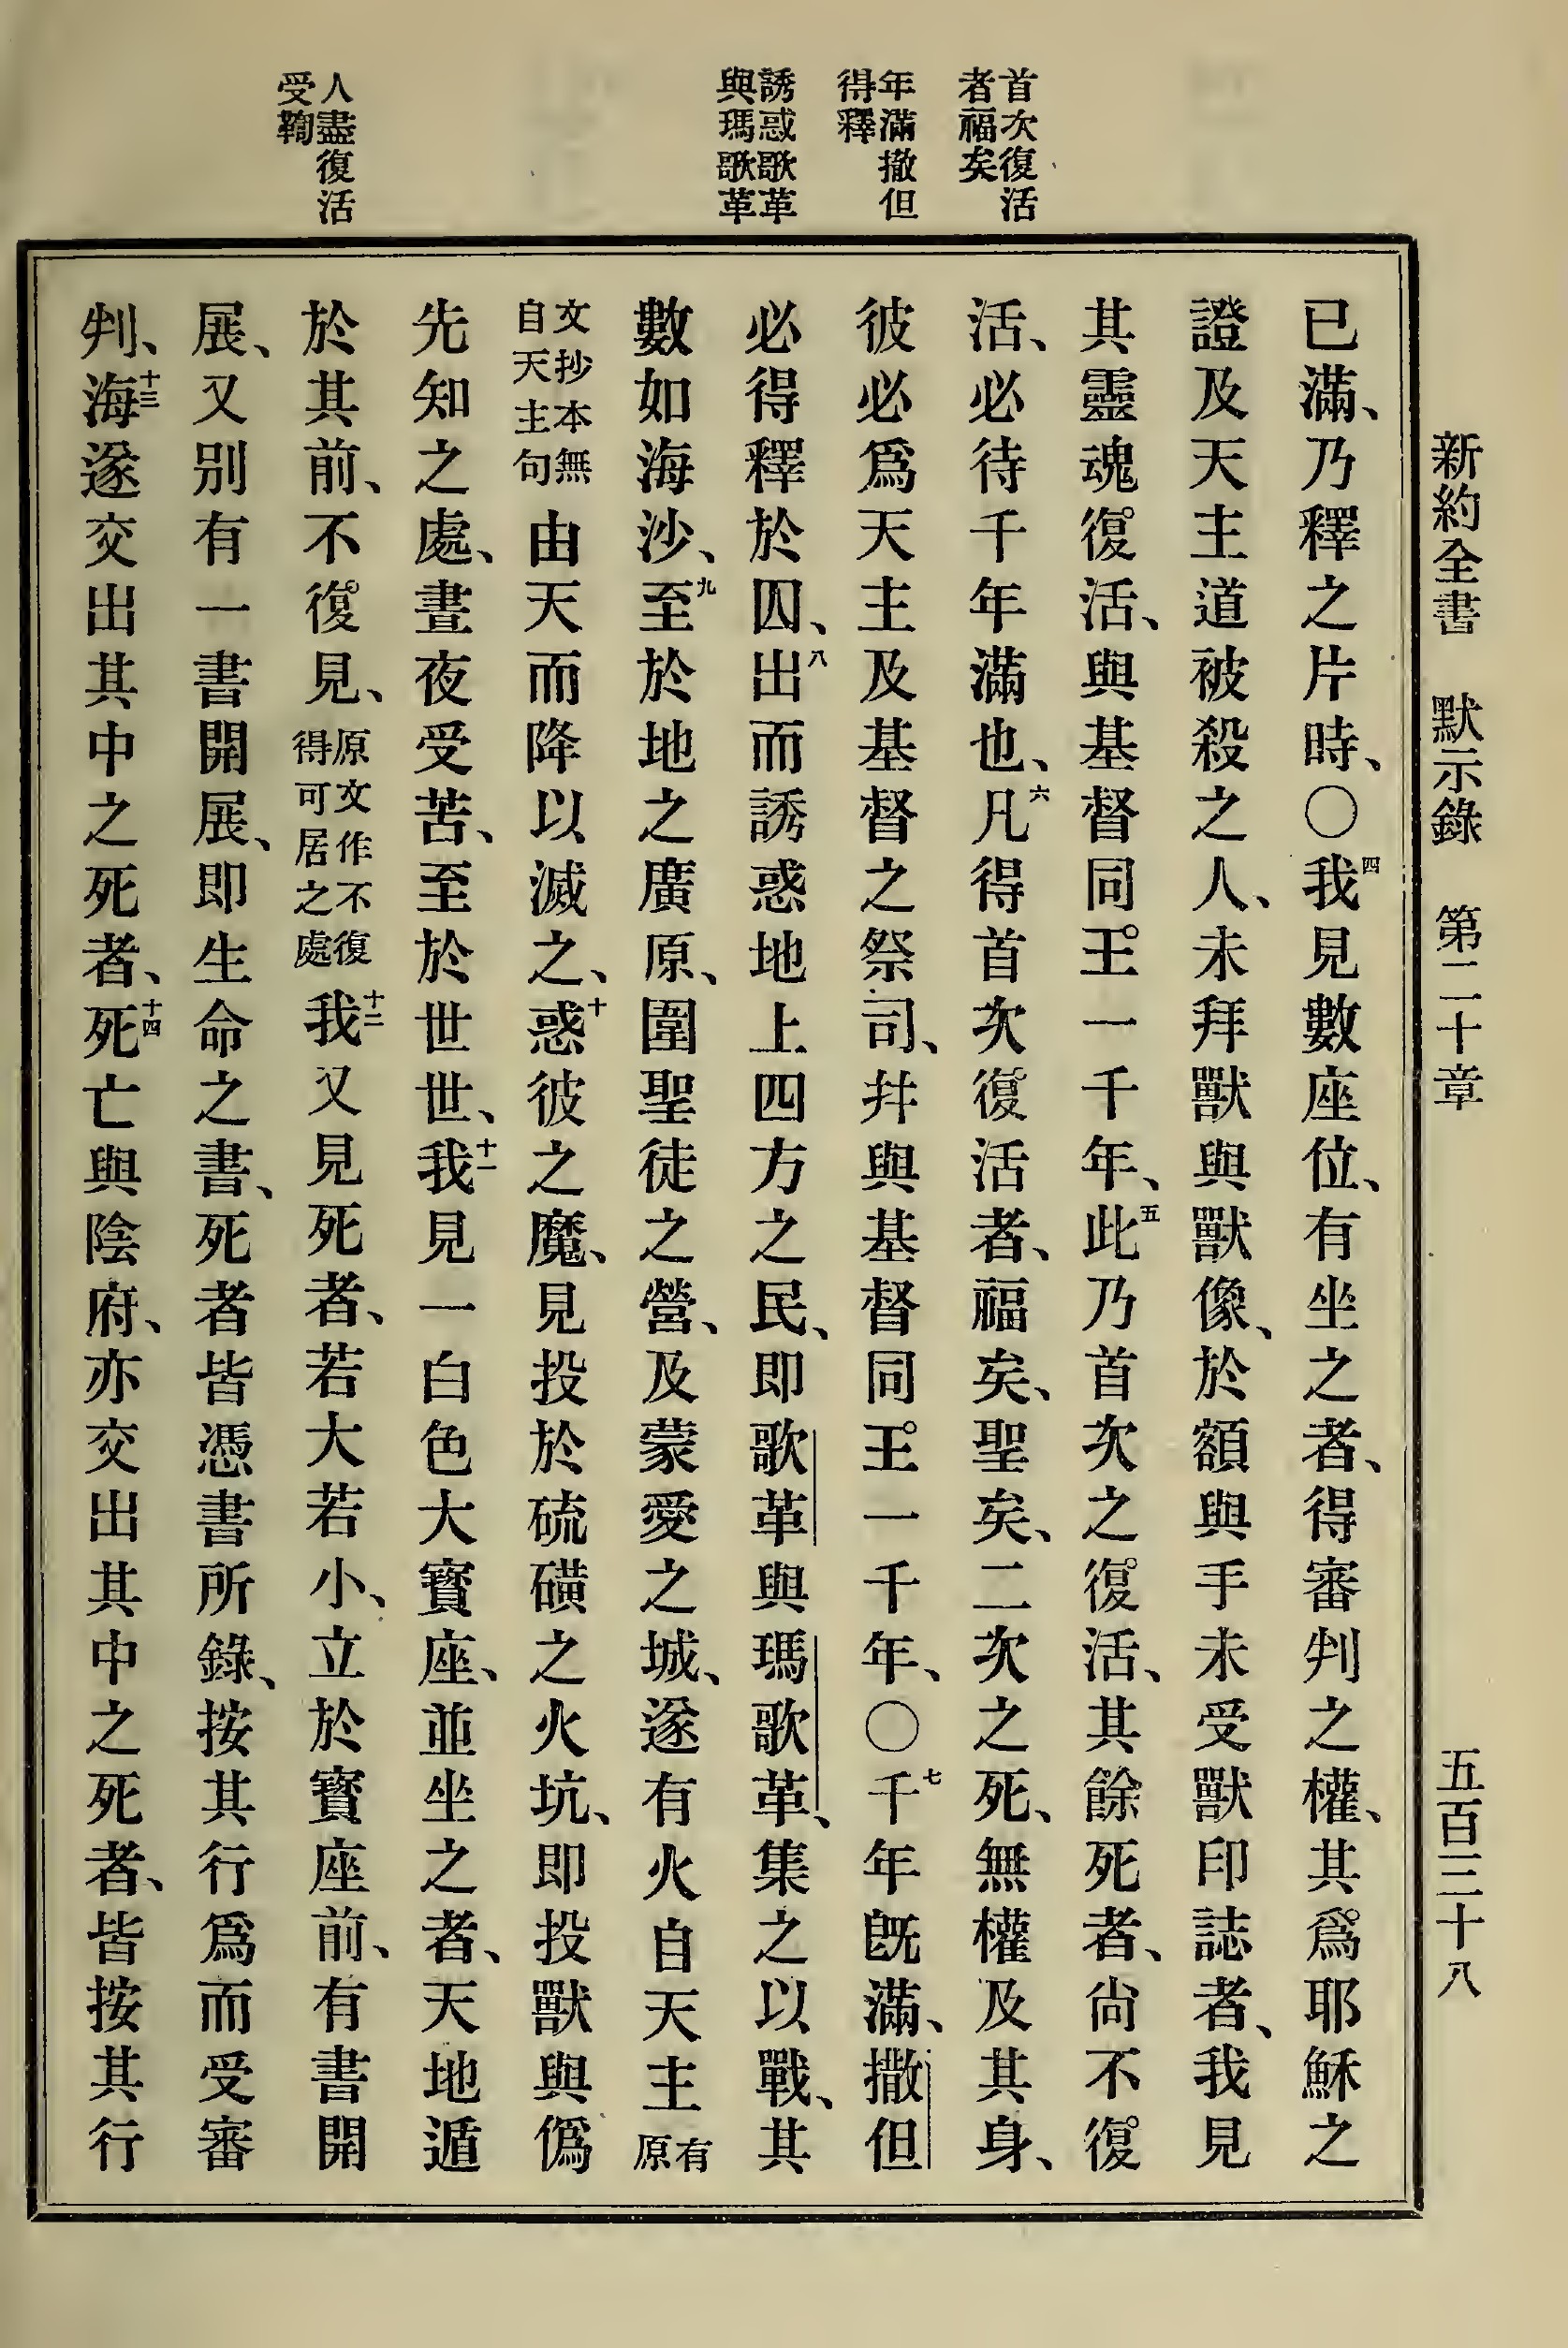 新約全書 默示錄 第二十章 五百三十八
首次復活
者福矣
年滿撒但
得釋
誘惑歌革
與瑪歌革
人盡復活
受鞫
已滿、乃釋之片時、〇四我見數座位、有坐之者、得審判之權、其爲耶穌之
證及天主道被殺之人、未拜獸與獸像、於額與手未受獸印誌者、我見
其靈魂復活、與基督同王一千年、五此乃首次之復活、其餘死者、尙不復
活、必待千年滿也、六凡得首次復活者、福矣、聖矣、二次之死、無權及其身、
彼必爲天主及基督之祭司、幷與基督同王一千年、〇七千年旣滿、撒但
必得釋於囚、八出而誘惑地上四方之民、卽歌革與瑪歌革、集之以戰、其
數如海沙、九至於地之廣原、圍聖徒之營、及蒙愛之城、遂有火自天主有原
文抄本無自天主句由天而降以滅之、十惑彼之魔、見投於硫磺之火坑、卽投獸與僞
先知之處、晝夜受苦、至於世世、十一我見一白色大寶座、並坐之者、天地遁
於其前、不復見、原文作不復得可居之處十二我又見死者、若大若小、立於寶座前、有書開
展、又別有一書開展、卽生命之書、死者皆憑書所錄、按其行爲而受審
判、十三海遂交出其中之死者、十四死亡與陰府、亦交出其中之死者、皆按其行